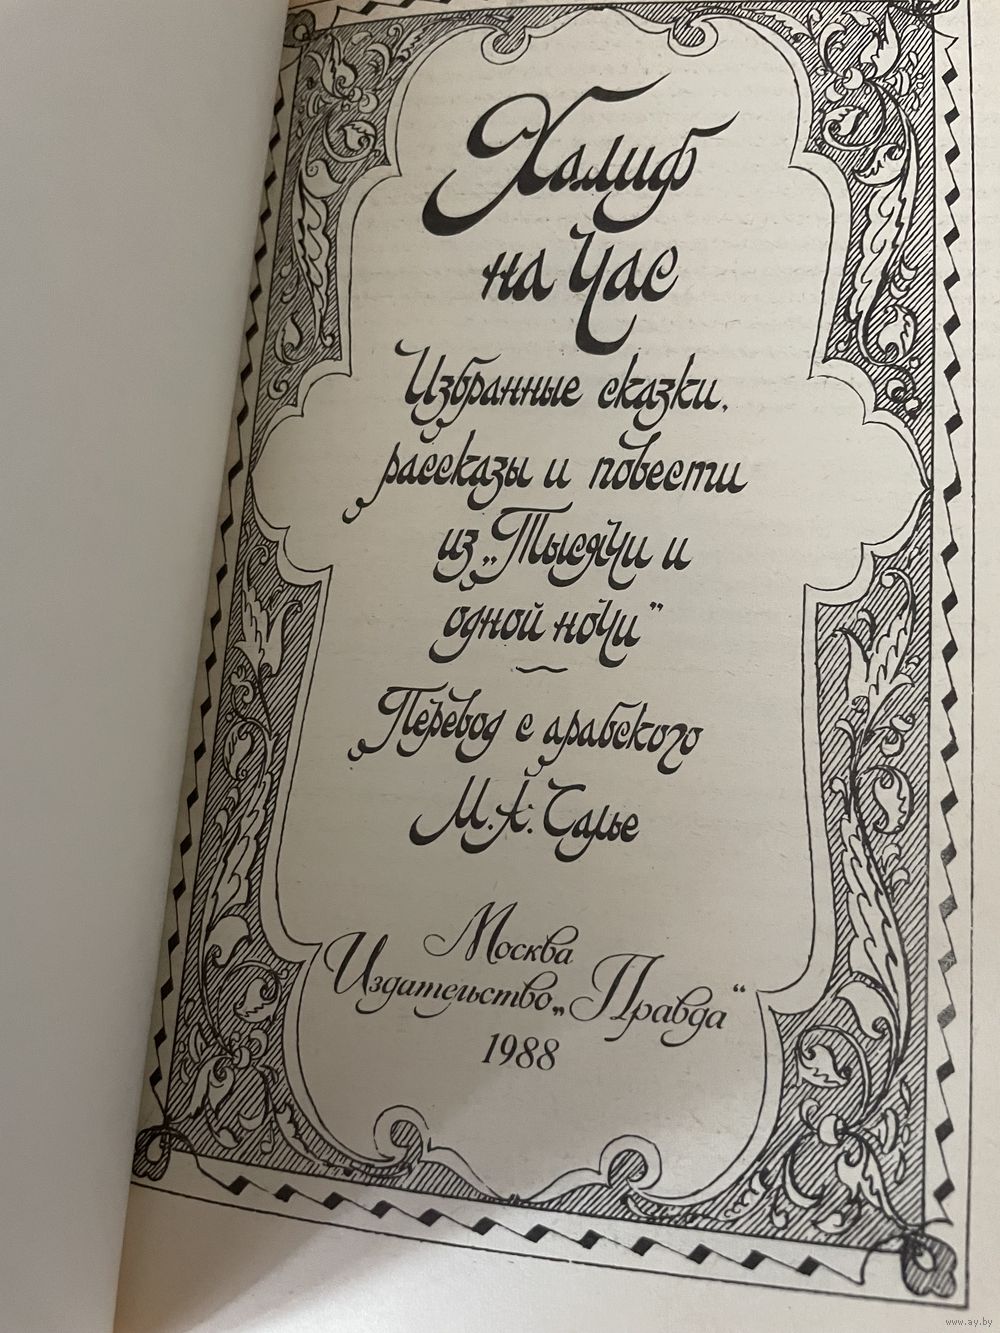 Халиф
на час
Избранные сказки,
рассказы и повести
из „Тысячи и
одной ночи”
Перевод с арабского
М.А. Салье
Москва
Издательство „Правда“
1988
www.ay.by